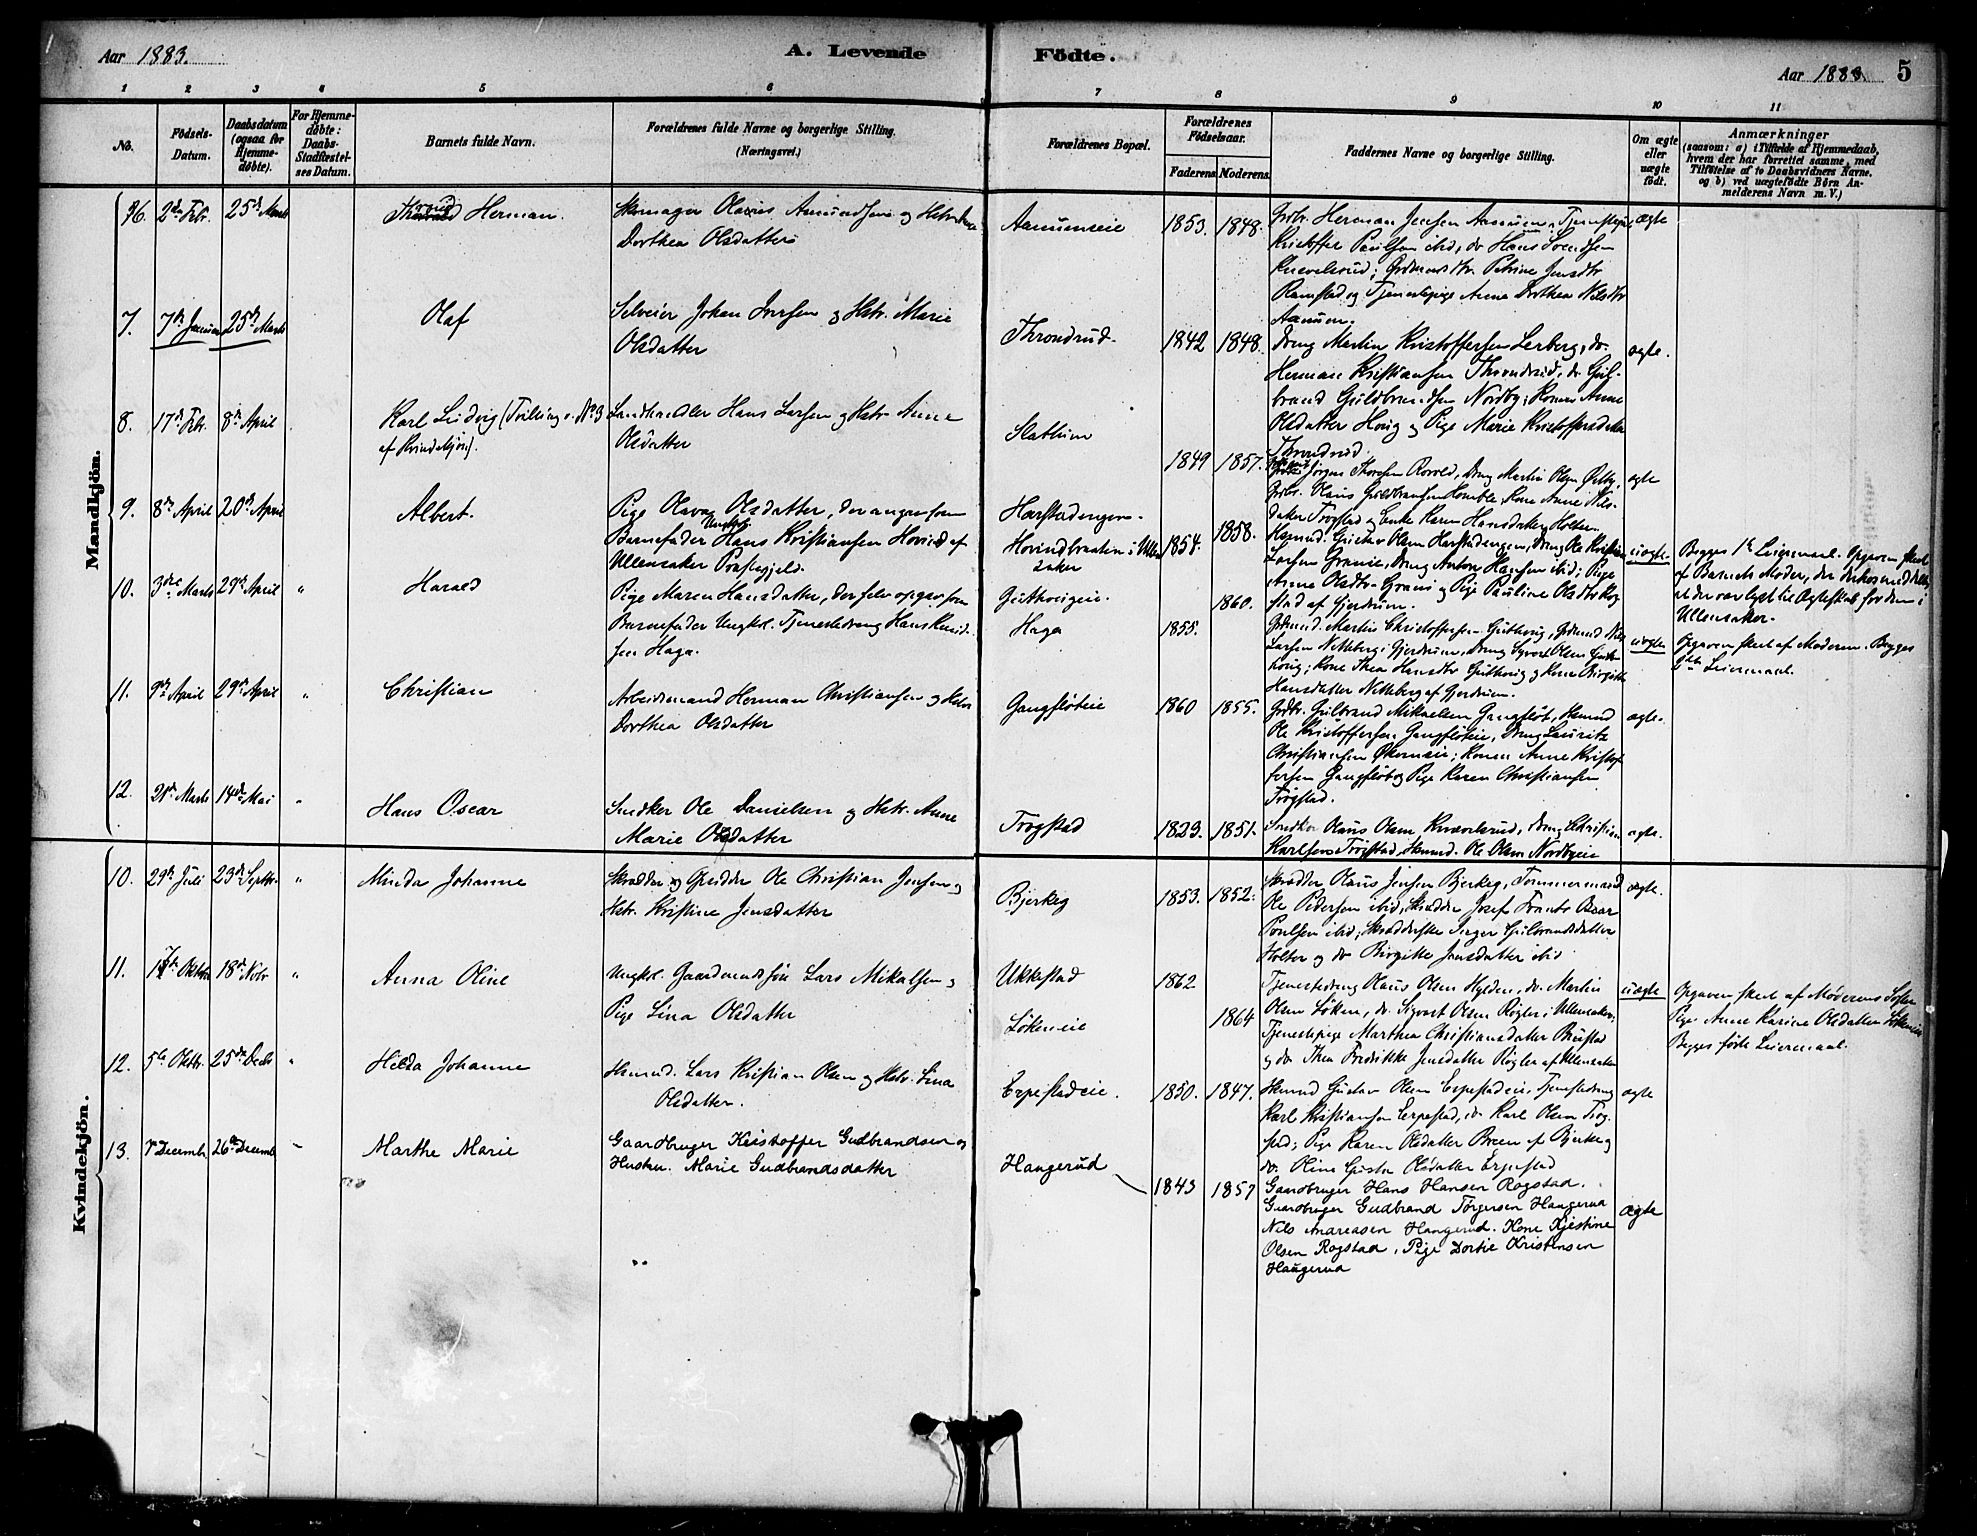 Aar 1883.
A. Levende Födte.
Aar 1883.
5
1 2 3 4 5 6 7 8 9 10 11
No.
Födsels-Datum.
Daabsdatum (ogsaa for Hjemme-döbte).
For Hjemme-döbte: Daabs-Stadfæstel-ses Datum.
Barnets fulde Navn.
Forældrenes fulde Navne og borgerlige Stilling. (Næringsvei.)
Forældrenes Bopæl.
Forældrenes Födselsaar.
Faderens Moderens.
Faddernes Navne og borgerlige Stilling.
Om ægte eller uægte födt.
Anmærkninger (saasom: a) i Tilfælde af Hjemmedaab, hvem der har forrettet samme, med Tilföielse af to Daabsvidners Navne, og b) ved uægtefödte Börn Anmelderens Navn m. V.)
Mandkjön.
6. 2den Febr. 25de Marts
Herman.
Skomager Olavus Amundsen og Hstr.
Dorthea Olsdatter
Aamumseie
1853. 1848.
Grdbr. Herman Jensen Aamum, Tjenestegut
Kristoffer Paulsen ibid, do Hans Svendsen
Knævelsrud; Petrine Jensdtr
Ramstad og Tjenestepige Anne Dorthea Nilsdtr
Aamum.
ægte
7. 7de Januar 25de Marts
Olaf
Selveier Johan Iversen og Hstr. Marie
Olsdatter
Throndrud.
1842 1848.
Dreng Martin Kristoffersen Lerberg, do.
Herman Kristiansen Throndrud, do Gul-
brand Guldbrandsen Nordby; Konen Anne
Olsdatter Houg og Pige Marie Kristoffersdatter
Throndrud.
ægte.
8. 17de Febr. 8de April
Karl Ludvig (Tvilling m. No 3
af Kvindekjön).
Landhandler Hans Larsen og Hstr. Anne
Olsdatter
Slattum
1849 1857.
Jörgen Thorsen Rovold, Dreng Martin Olsen
Grdbr. Olaus Guldbrandsen Komble, Kone Anne Nils-
datter Trögstad og Enke Karen Hansdatter Holter.
ægte
9. 8de April 20de April
Albert.
Pige Olava Olsdatter, der angav som
Barnefader Ungkal. Hans Kristiansen Hovind af
Ullensaker Præstegjeld.
Harstadengen.
Hovindbraaten i Ullen
saker
1854. 1858.
Hsmd. Gustav Olsen Harstadengen, Dreng Ole Kristian
Larsen Graneie, Dreng Anton Hansen ibid; Pige
Anne Olsdtr Grani og Pige Pauline Olsdtr Rog
stad af Gjerdrum.
uægte
Begges 1ste Leiermaal. Opgaven skeet
af Barnets Moder,
at der var lyst til Ægteskab for dem i
Ullensaker.
10. 3die Marts 29de April "
Harald
Pige Maren Hansdatter, der selv opgav som
Barnefader Ungkal. Tjenestedreng Hans Knud-
sen Haga.
Gutthougeie.
Haga
1855. 1860.
Gdmd. Martin Christoffersen Gutthoug, Grdmd Nils
Larsen Netteberg i Gjerdrum, Dreng Syvert Olsen Gutt-
houg; Kone Thea Hansdtr Gutthoug og Kone Birgitte
Hansdatter Netteberg af Gjerdrum.
uægte
Opgaven skeet af Moderen. Begges
Leiermaal.
11. 9de April 29de April "
Christian
Arbeidsmand Herman Christiansen og Hstr
Dorthea Olsdatter
Gangflöteie
1860 1855.
Grdbr. Gulbrand Mikaelsen Gangflöt, Hsmd
Ole Kristoffersen Gangflöteie, Dreng Lauritz
Christiansen Ökerneie; Konen Anne Kristof
fersen Gangflöt og Pige Karen Christiansen
Trögstad.
ægte.
12. 21de Marts 14de Mai "
Hans Oscar
Snedker Ole Danielsen og Hstr. Anne
Marie Olsdatter
Trögstad
1823. 1851.
Snedker Olaus Olsen Knævelsrud, Dreng Christian
Karlsen Trögstad, Hsmd. Ole Olsen Nordbyeie
ægte.
Kvindekjön.
10. 29de Juli 23de Septbr. "
Minda Johanne
Skrædder og Ole Christian Jensen og
Hstr. Kristine Jensdatter
Bjerkeg
1853. 1852.
Skrædder Olaus Jensen Bjerkeg, Tömmermand
Ole Pedersen ibid, Skrædder Josef Frants Oscar
Poulsen ibid; Inger Gulbrandsdatter
Holter og do Birgitte Jensdatter ibid
ægte.
11. Oktbr 18de Novbr "
Anna Oline
Ungkal. Gaardmandssön Lars Mikalsen og
Pige Lina Olsdatter
Ukkestad
Lökeneie
1862
1864
Tjenestedreng Olaus Olsen Hylden, do. Martin
Olsen Löken, do. Sigvart Olsen Rögler i Ullensaker;
Tjenestepige Marthea Christiansdatter Bustad
og do Thea Fredrikke Jensdatter Rögler af Ullensaker
uægte
Opgaven skeet af Moderens Söster
Pige Anne Karine Olsdatter Lökeneie
Begges förste Leiermaal.
12. 5te Oktbr. 25de Decbr "
Hilda Johanne
Hsmd. Lars Kristian Olsen og Hstr. Lina
Olsdatter.
Erpestadeie.
1850. 1847.
Hsmd Gustav Olsen Erpestadeie, Tjenestedreng
Karl Kristiansen Erpestad, do Karl Olsen Trög
stad; Pige Karen Olsdatter Breen af Bjerke og
do. Oline Gusta Olsdatter Erpestad
ægte
13. Decembr. 26de Decemb "
Marthe Marie
Gaardbruger Kristoffer Gudbrandsen og
Hustru. Marie Gudbrandsdatter
Haugerud
1843 1857
Gaardbruger Hans Hansen Rogstad.
Gaardbruger Gudbrand Törgersen Haugerud
Nils Andreasen Haugerud. Kone Kjestine
Olsen Rogstad, Pige Dortie Kristensen
Haugerud
ægte